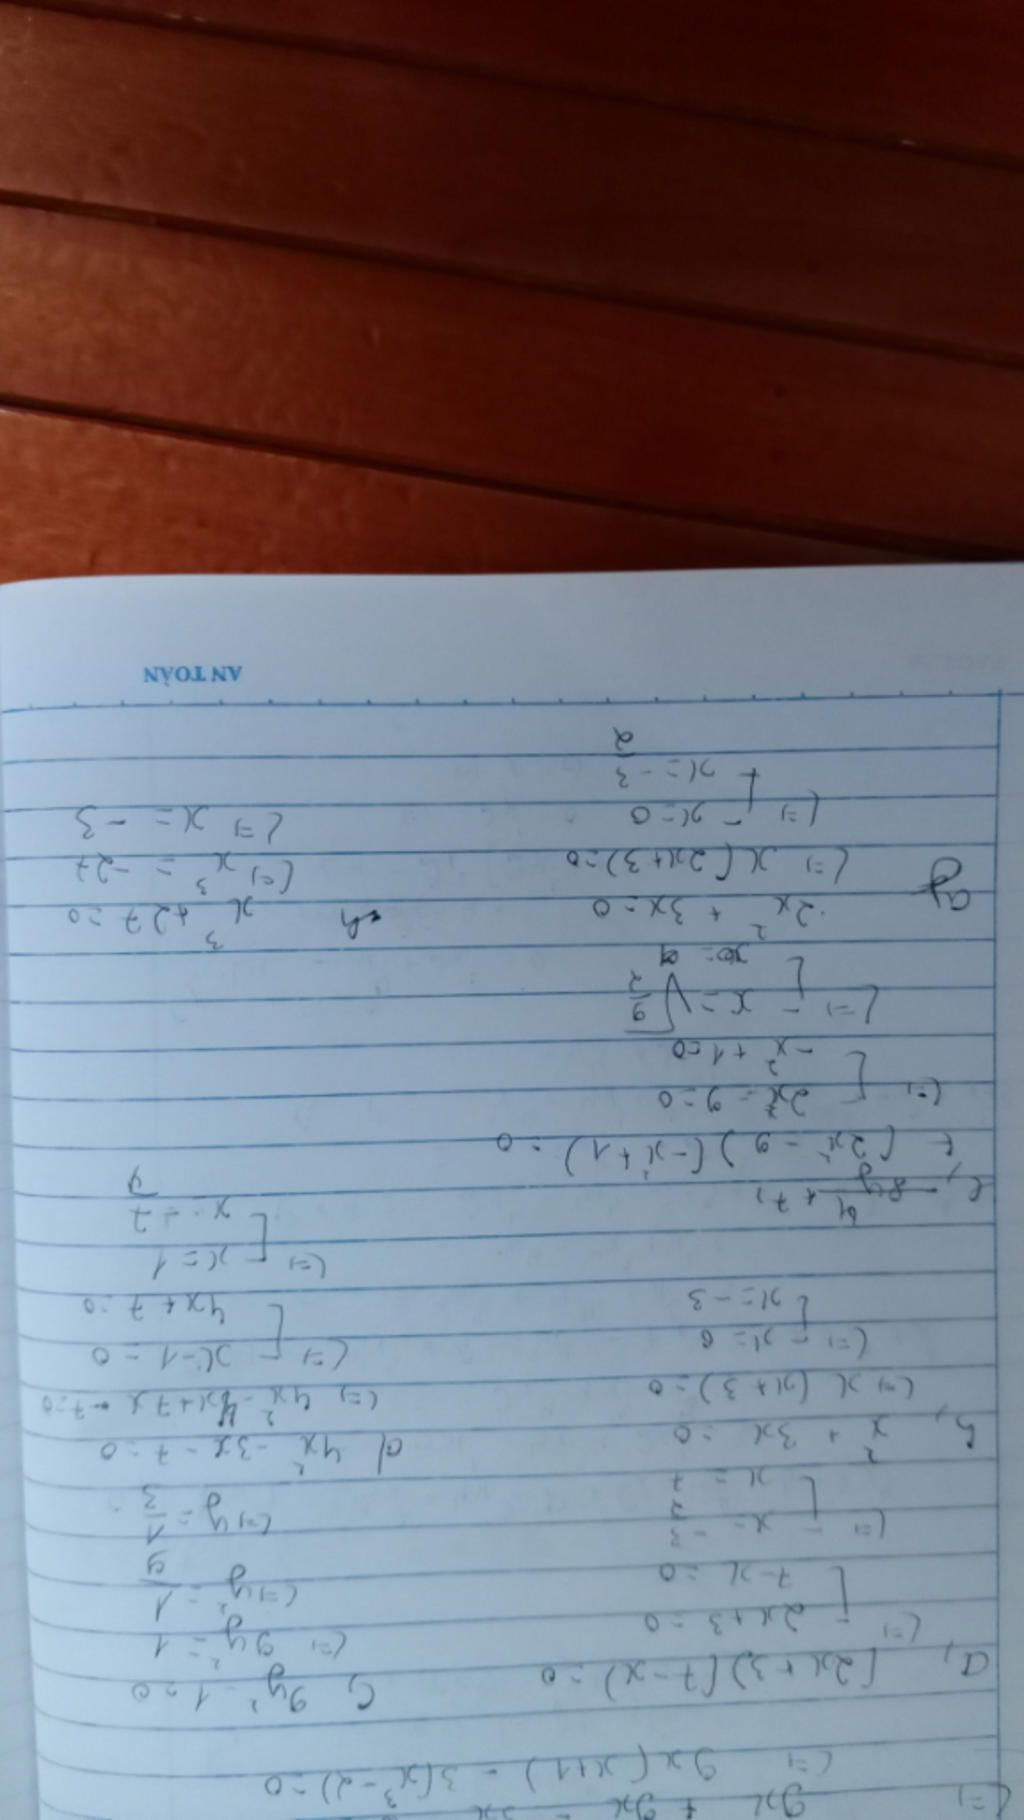 <=> 9x(x+1) - 3(x³-2)=0
a, (2x+3)(7-x)=0
<=> [ 2x+3=0
7-x=0
<=> [ x = -3/2
x = 7
b, x² + 3x = 0
<=> x (x+3)=0
<=> [ x=0
x=-3
c, 9y²-1=0
<=> 9y²=1
<=> y² = 1/9
<=> y = 1/3
d/ 4x²-3x-7=0
<=> 4x²-4x+7x-7=0
<=> [ x-1=0
4x+7=0
<=> [ x=1
x=-7/4
(2x²-9)(-x²+1)=0
<=> [ 2x²-9=0
-x²+1=0
<=> [ x=√9/2
g 2x² + 3x=0
<=> x(2x+3)=0
<=> [ x=0
x=-3/2
h x³+27=0
<=> x³ = -27
<=> x = -3
AN TOÀN